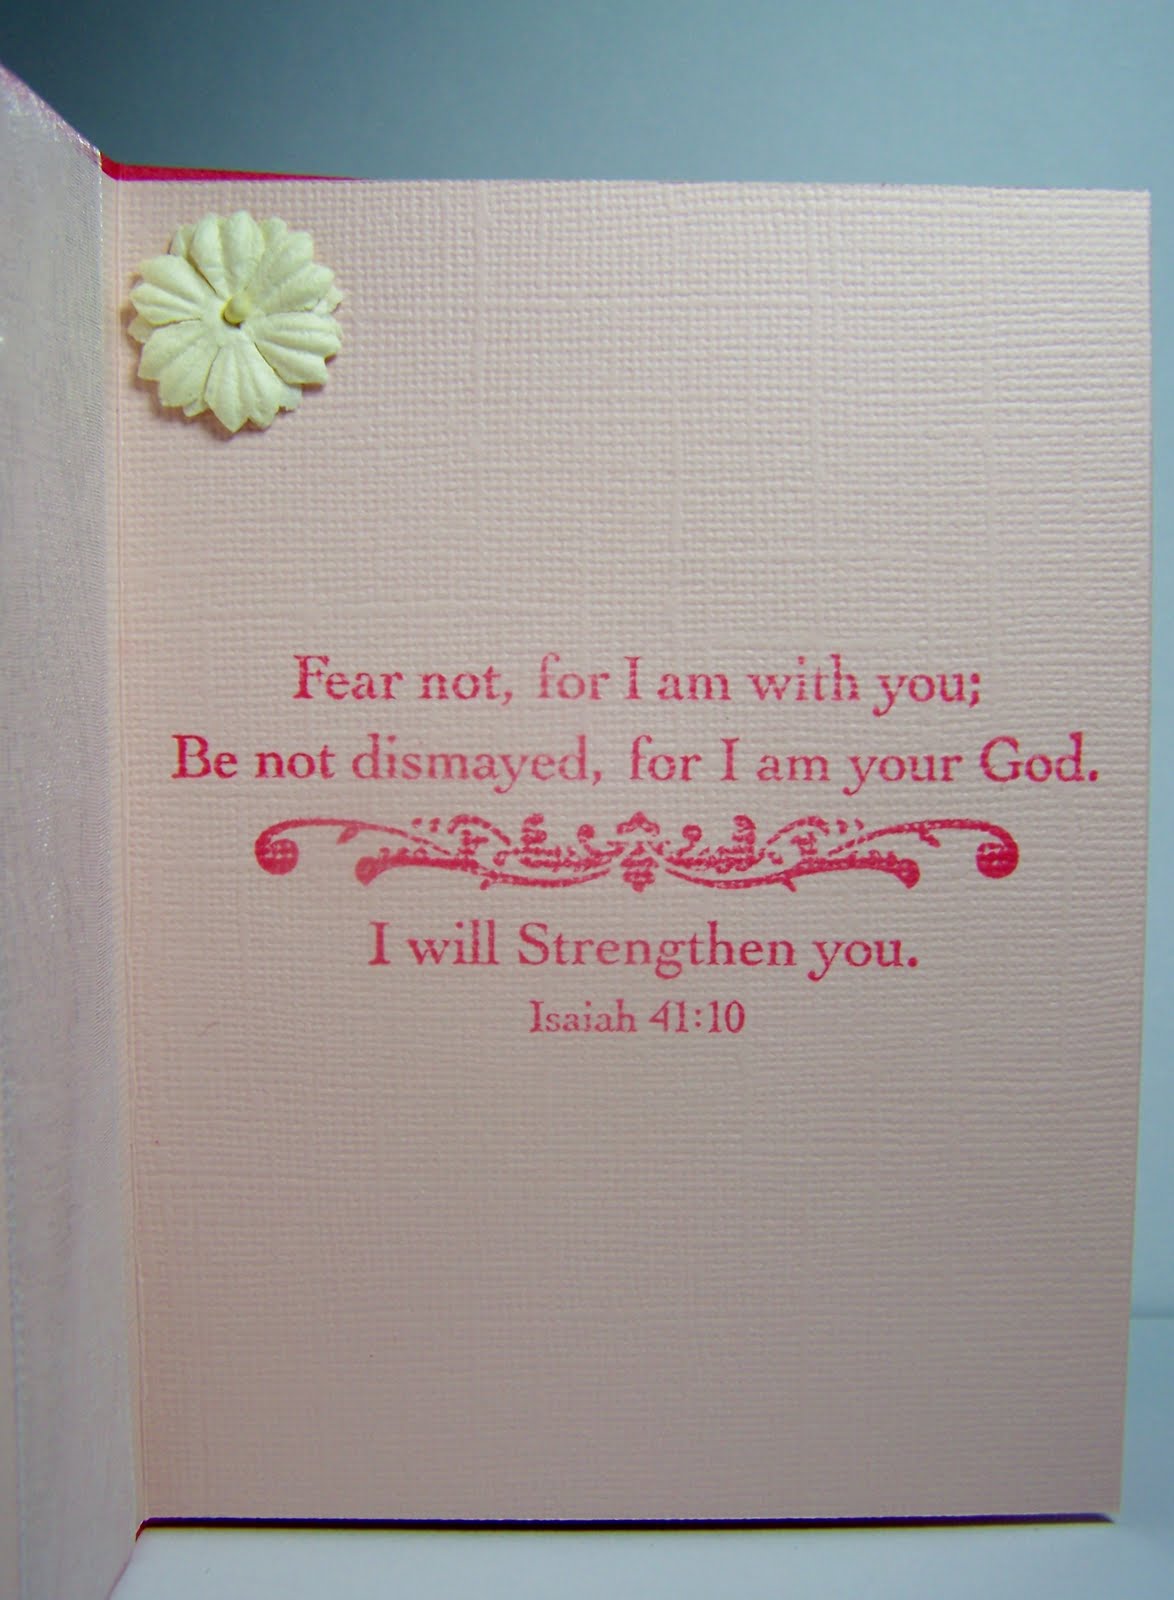 Fear not, for I am with you;
Be not dismayed, for I am your God.
I will Strengthen you.
Isaiah 41:10